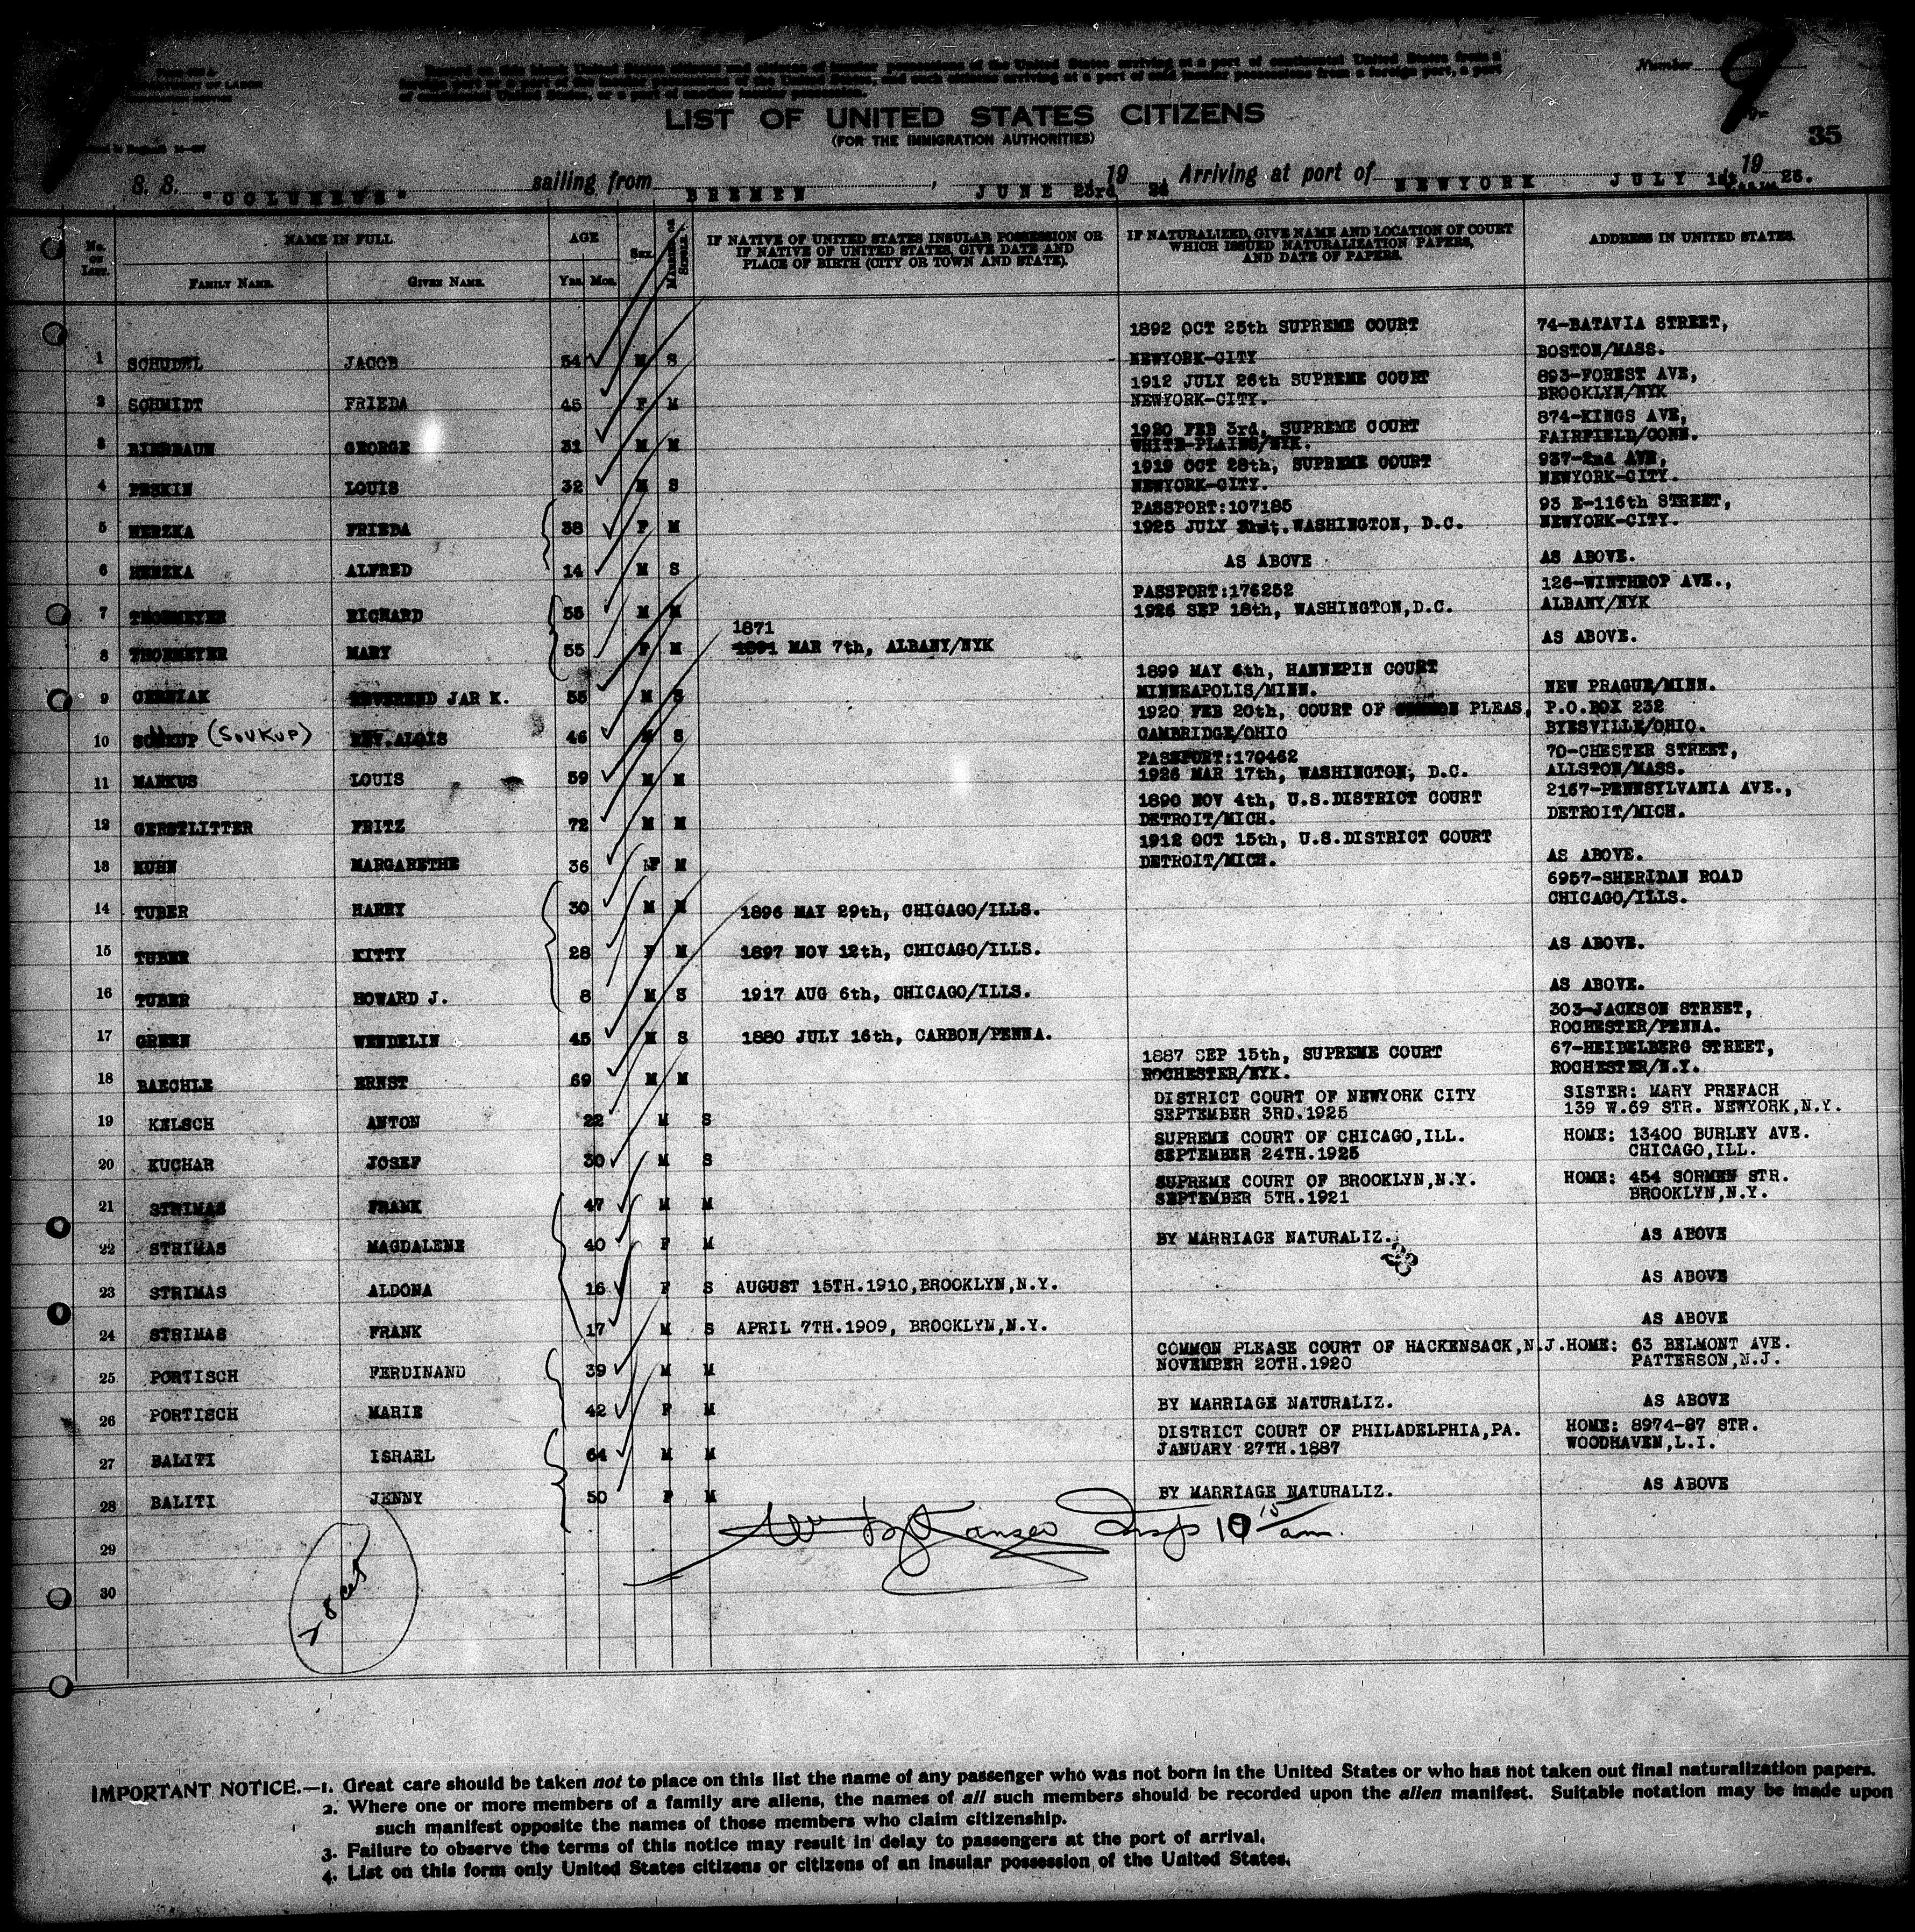 Number 9
LIST OF UNITED STATES CITIZENS
(FOR THE IMMIGRATION AUTHORITIES)
35
S. S. "COLUMBUS" sailing from BREMEN, JUNE 23rd 19 26 Arriving at port of NEWYORK JULY 1st 19 26.
No. on List.
NAME IN FULL
Family Name.
Given Name.
AGE
Yrs. Mos.
Sex.
Married or Single.
IF NATIVE OF UNITED STATES INSULAR POSSESSION OR
IF NATIVE OF UNITED STATES, GIVE DATE AND
PLACE OF BIRTH (CITY OR TOWN AND STATE).
IF NATURALIZED, GIVE NAME AND LOCATION OF COURT
WHICH ISSUED NATURALIZATION PAPERS,
AND DATE OF PAPERS.
ADDRESS IN UNITED STATES.
1892 OCT 25th SUPREME COURT 74-BATAVIA STREET,
1 SCHUDEL JACOB 54 M S NEWYORK-CITY BOSTON/MASS.
1912 JULY 26th SUPREME COURT 893-FOREST AVE,
2 SCHMIDT FRIEDA 45 F M NEWYORK-CITY. BROOKLYN/NYK
1920 FEB 3rd, SUPREME COURT 874-KINGS AVE,
3 BIERBAUM GEORGE 31 M M WHITE-PLAINS/NYK. FAIRFIELD/CONN.
1919 OCT 28th, SUPREME COURT 937-2nd AVE,
4 PESKIN LOUIS 32 M S NEWYORK-CITY. NEWYORK-CITY.
PASSPORT:107185 93 E-116th STREET,
5 HERZKA FRIEDA 38 F M 1925 JULY WASHINGTON, D.C. NEWYORK-CITY.
6 HERZKA ALFRED 14 M S AS ABOVE AS ABOVE.
PASSPORT:176252 126-WINTHROP AVE.,
7 THORMEYER RICHARD 55 M M 1926 SEP 18th, WASHINGTON,D.C. ALBANY/NYK
1871
8 THORMEYER MARY 55 F M 1891 MAR 7th, ALBANY/NYK AS ABOVE.
1899 MAY 6th, HANNEPIN COURT
9 CERMAK REVEREND JAR K. 55 M S MINNEAPOLIS/MINN. NEW PRAGUE/MINN.
1920 FEB 20th, COURT OF COMMON PLEAS, P.O.BOX 232
10 SOUKUP (SOUKUP) REV.ALOIS 46 M S CAMBRIDGE/OHIO BYESVILLE/OHIO.
PASSPORT:170462 70-CHESTER STREET,
11 MARKUS LOUIS 59 M M 1926 MAR 17th, WASHINGTON, D.C. ALLSTON/MASS.
1890 NOV 4th, U.S.DISTRICT COURT 2167-PENNSYLVANIA AVE.,
12 GERSTLITTER FRITZ 72 M M DETROIT/MICH. DETROIT/MICH.
1912 OCT 15th, U.S.DISTRICT COURT
13 KUHN MARGARETHE 36 F M DETROIT/MICH. AS ABOVE.
6957-SHERIDAN ROAD
14 TUBER HARRY 30 M M 1896 MAY 29th, CHICAGO/ILLS. CHICAGO/ILLS.
15 TUBER KITTY 28 F M 1897 NOV 12th, CHICAGO/ILLS. AS ABOVE.
16 TUBER HOWARD J. 8 M S 1917 AUG 6th, CHICAGO/ILLS. AS ABOVE.
303-JACKSON STREET,
17 GREEN WENDELIN 45 M S 1880 JULY 16th, CARBON/PENNA. ROCHESTER/PENNA.
1887 SEP 15th, SUPREME COURT 67-HEIDELBERG STREET,
18 BAECHLE ERNST 69 M M ROCHESTER/NYK. ROCHESTER/N.Y.
DISTRICT COURT OF NEWYORK CITY SISTER: MARY PREFACH
19 KELSCH ANTON 22 M S SEPTEMBER 3RD.1925 139 W.69 STR. NEWYORK,N.Y.
SUPREME COURT OF CHICAGO,ILL. HOME: 13400 BURLEY AVE.
20 KUCHAR JOSEF 30 M S SEPTEMBER 24TH.1925 CHICAGO,ILL.
SUPREME COURT OF BROOKLYN,N.Y. HOME: 454 SORMEN STR.
21 STRIMAS FRANK 47 M M SEPTEMBER 5TH.1921 BROOKLYN,N.Y.
22 STRIMAS MAGDALENE 40 F M BY MARRIAGE NATURALIZ. AS ABOVE
23 STRIMAS ALDONA 16 F S AUGUST 15TH.1910,BROOKLYN,N.Y. AS ABOVE
24 STRIMAS FRANK 17 M S APRIL 7TH.1909, BROOKLYN,N.Y. AS ABOVE
COMMON PLEASE COURT OF HACKENSACK,N.J.HOME: 63 BELMONT AVE.
25 PORTISCH FERDINAND 39 M M NOVEMBER 20TH.1920 PATTERSON,N.J.
26 PORTISCH MARIE 42 F M BY MARRIAGE NATURALIZ. AS ABOVE
DISTRICT COURT OF PHILADELPHIA,PA. HOME: 8974-87 STR.
27 BALITI ISRAEL 64 M M JANUARY 27TH.1887 WOODHAVEN,L.I.
28 BALITI JENNY 50 F M BY MARRIAGE NATURALIZ. AS ABOVE
29 Insp 10 15 am.
30
IMPORTANT NOTICE.—1. Great care should be taken not to place on this list the name of any passenger who was not born in the United States or who has not taken out final naturalization papers.
2. Where one or more members of a family are aliens, the names of all such members should be recorded upon the alien manifest. Suitable notation may be made upon
such manifest opposite the names of those members who claim citizenship.
3. Failure to observe the terms of this notice may result in delay to passengers at the port of arrival.
4. List on this form only United States citizens or citizens of an insular possession of the United States.